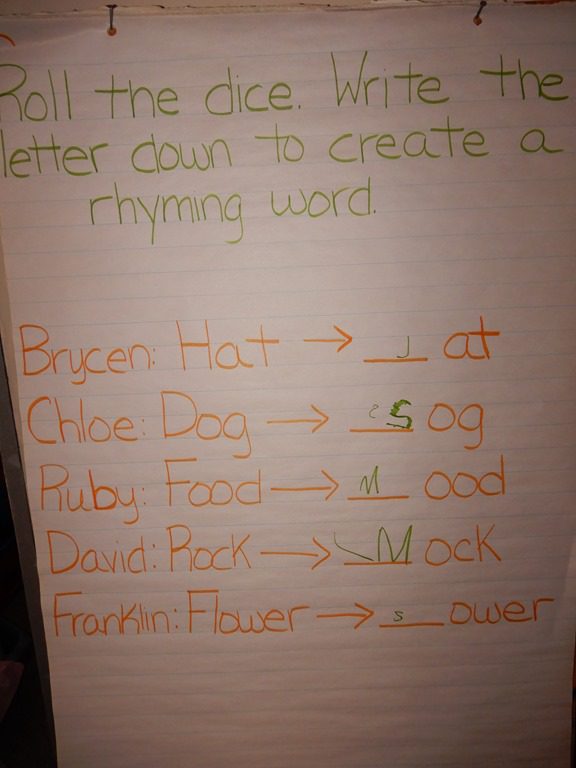 Roll the dice. Write the
letter down to create a
rhyming word.
Brycen: Hat → J at
Chloe: Dog → S og
Ruby: Food → M ood
David: Rock → M ock
Franklin: Flower → s ower